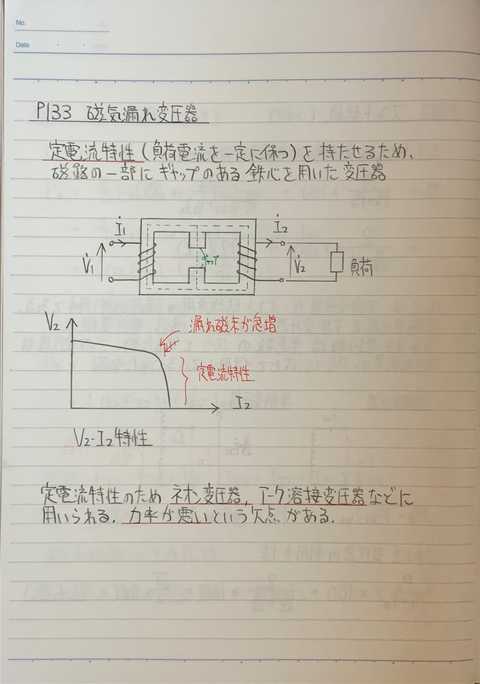 No.
Date
P133 磁気漏れ変圧器
定電流特性(負荷電流を一定に保つ)を持たせるため、
磁路の一部にギャップのある鉄心を用いた変圧器
İ1
İ2
V̇1
ギャップ
V̇2
負荷
V2
漏れ磁束が急増
定電流特性
I2
V2-I2特性
定電流特性のためネオン変圧器、アーク溶接変圧器などに
用いられる。力率が悪いという欠点がある。